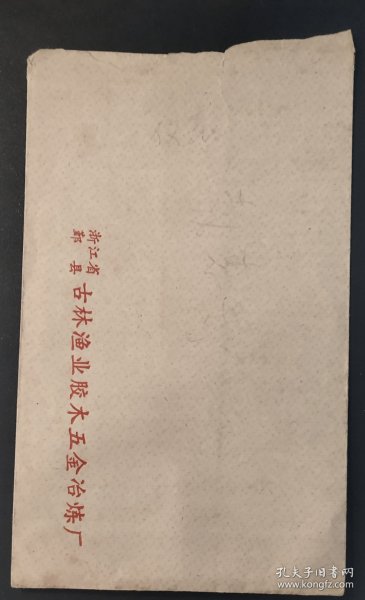 浙江省
鄞县
古林渔业胶木五金冶炼厂
孔夫子旧书网
www.kongfz.com